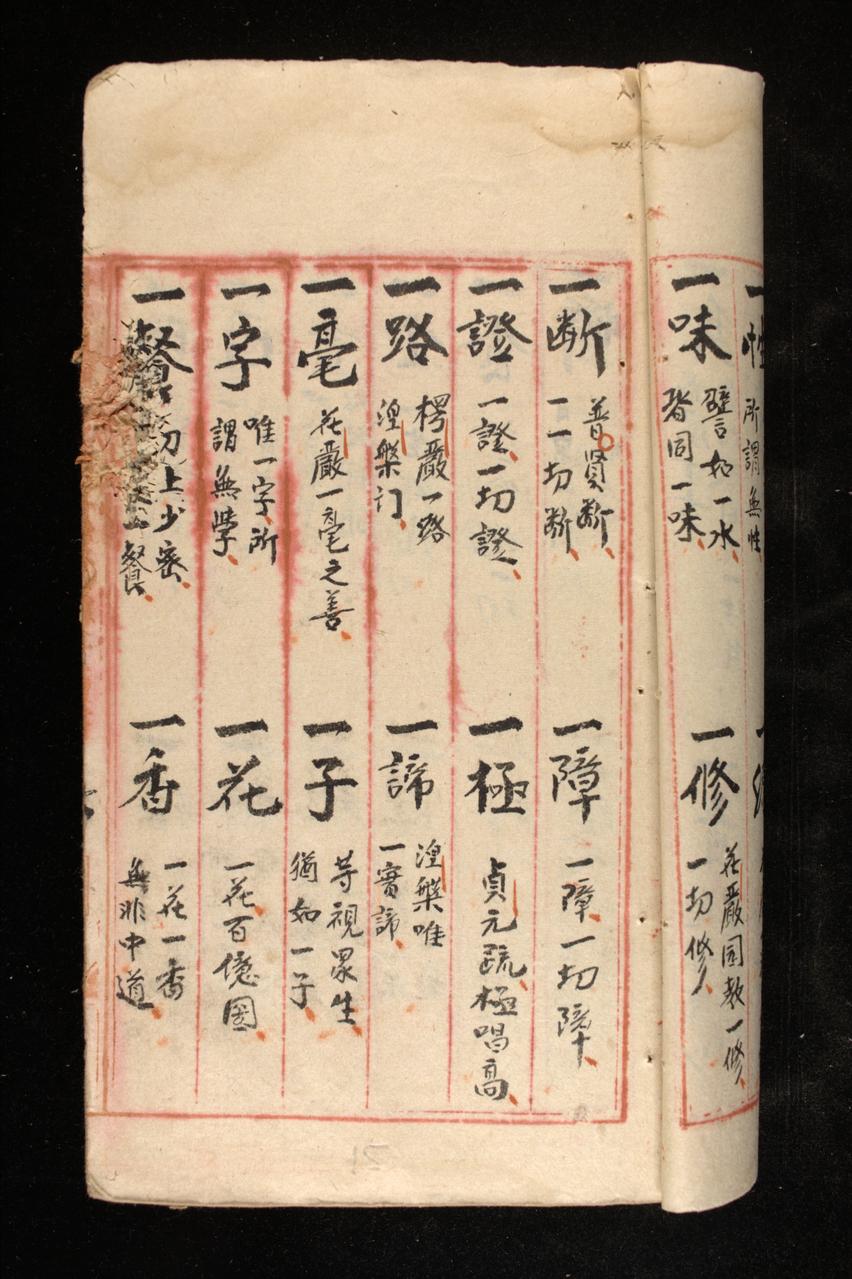 一
所謂無性
一味
譬如一水
皆同一味
一修
花嚴圓教一修
一切修
一断
普贤断
一一切断
一障
一障一切障
一證
一證一切證
一極
貞元疏極唱高
一路
楞嚴一路
涅槃门
一諦
涅槃唯
一實諦
一毫
花嚴一毫之善
一子
等視眾生
猶如一子
一字
唯一字所
謂無學
一花
一花百億国
一餐
切上少密
一餐
一香
一花一香
無非中道